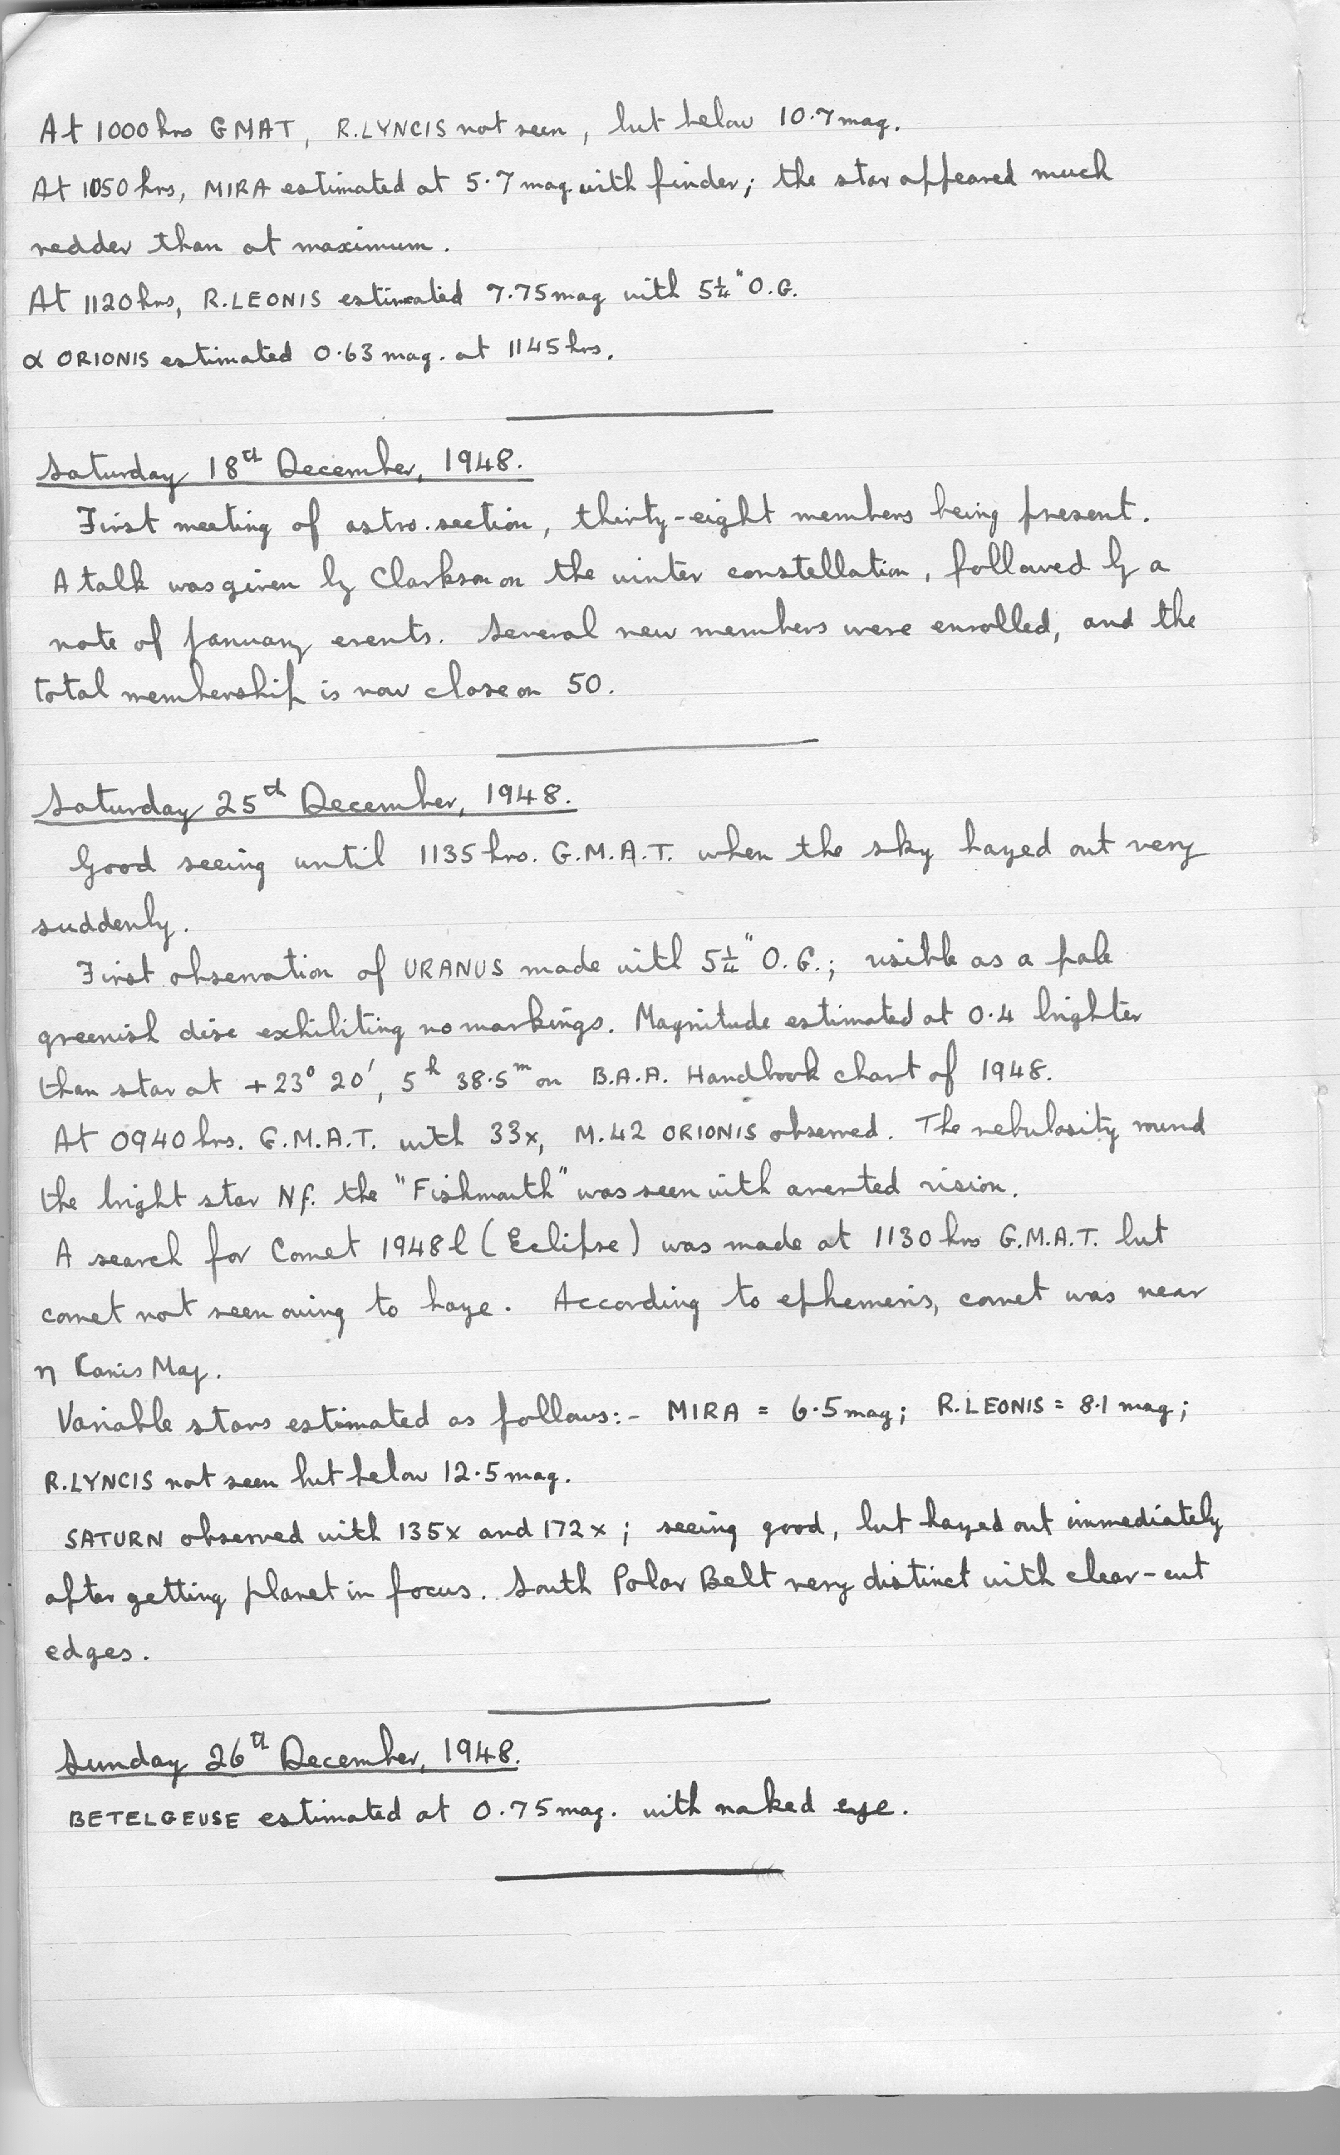 At 1000 hrs GMAT, R.LYNCIS not seen, but below 10.7 mag.
At 1050 hrs, MIRA estimated at 5.7 mag. with finder; the star appeared much
redder than at maximum.
At 1120 hrs, R.LEONIS estimated 7.75 mag with 5¼" O.G.
α ORIONIS estimated 0.63 mag. at 1145 hrs.
Saturday 18th December, 1948.
First meeting of astro. section, thirty-eight members being present.
A talk was given by Clarkson on the winter constellation, followed by a
note of January events. Several new members were enrolled, and the
total membership is now close on 50.
Saturday 25th December, 1948.
Good seeing until 1135 hrs. G.M.A.T. when the sky hazed out very
suddenly.
First observation of URANUS made with 5¼" O.G.; visible as a pale
greenish disc exhibiting no markings. Magnitude estimated at 0.4 brighter
than star at +23° 20', 5h 38.5m on B.A.A. Handbook chart of 1948.
At 0940 hrs. G.M.A.T. with 33x, M.42 ORIONIS observed. The nebulosity round
the bright star Nf. the "Fishmouth" was seen with averted vision.
A search for Comet 1948 l (Eclipse) was made at 1130 hrs G.M.A.T. but
comet not seen owing to haze. According to ephemeris, comet was near
η Canis Maj.
Variable stars estimated as follows:- MIRA = 6.5 mag; R.LEONIS = 8.1 mag;
R.LYNCIS not seen but below 12.5 mag.
SATURN observed with 135x and 172x; seeing good, but hazed out immediately
after getting planet in focus. South Polar Belt very distinct with clear-cut
edges.
Sunday 26th December, 1948.
BETELGEUSE estimated at 0.75 mag. with naked eye.